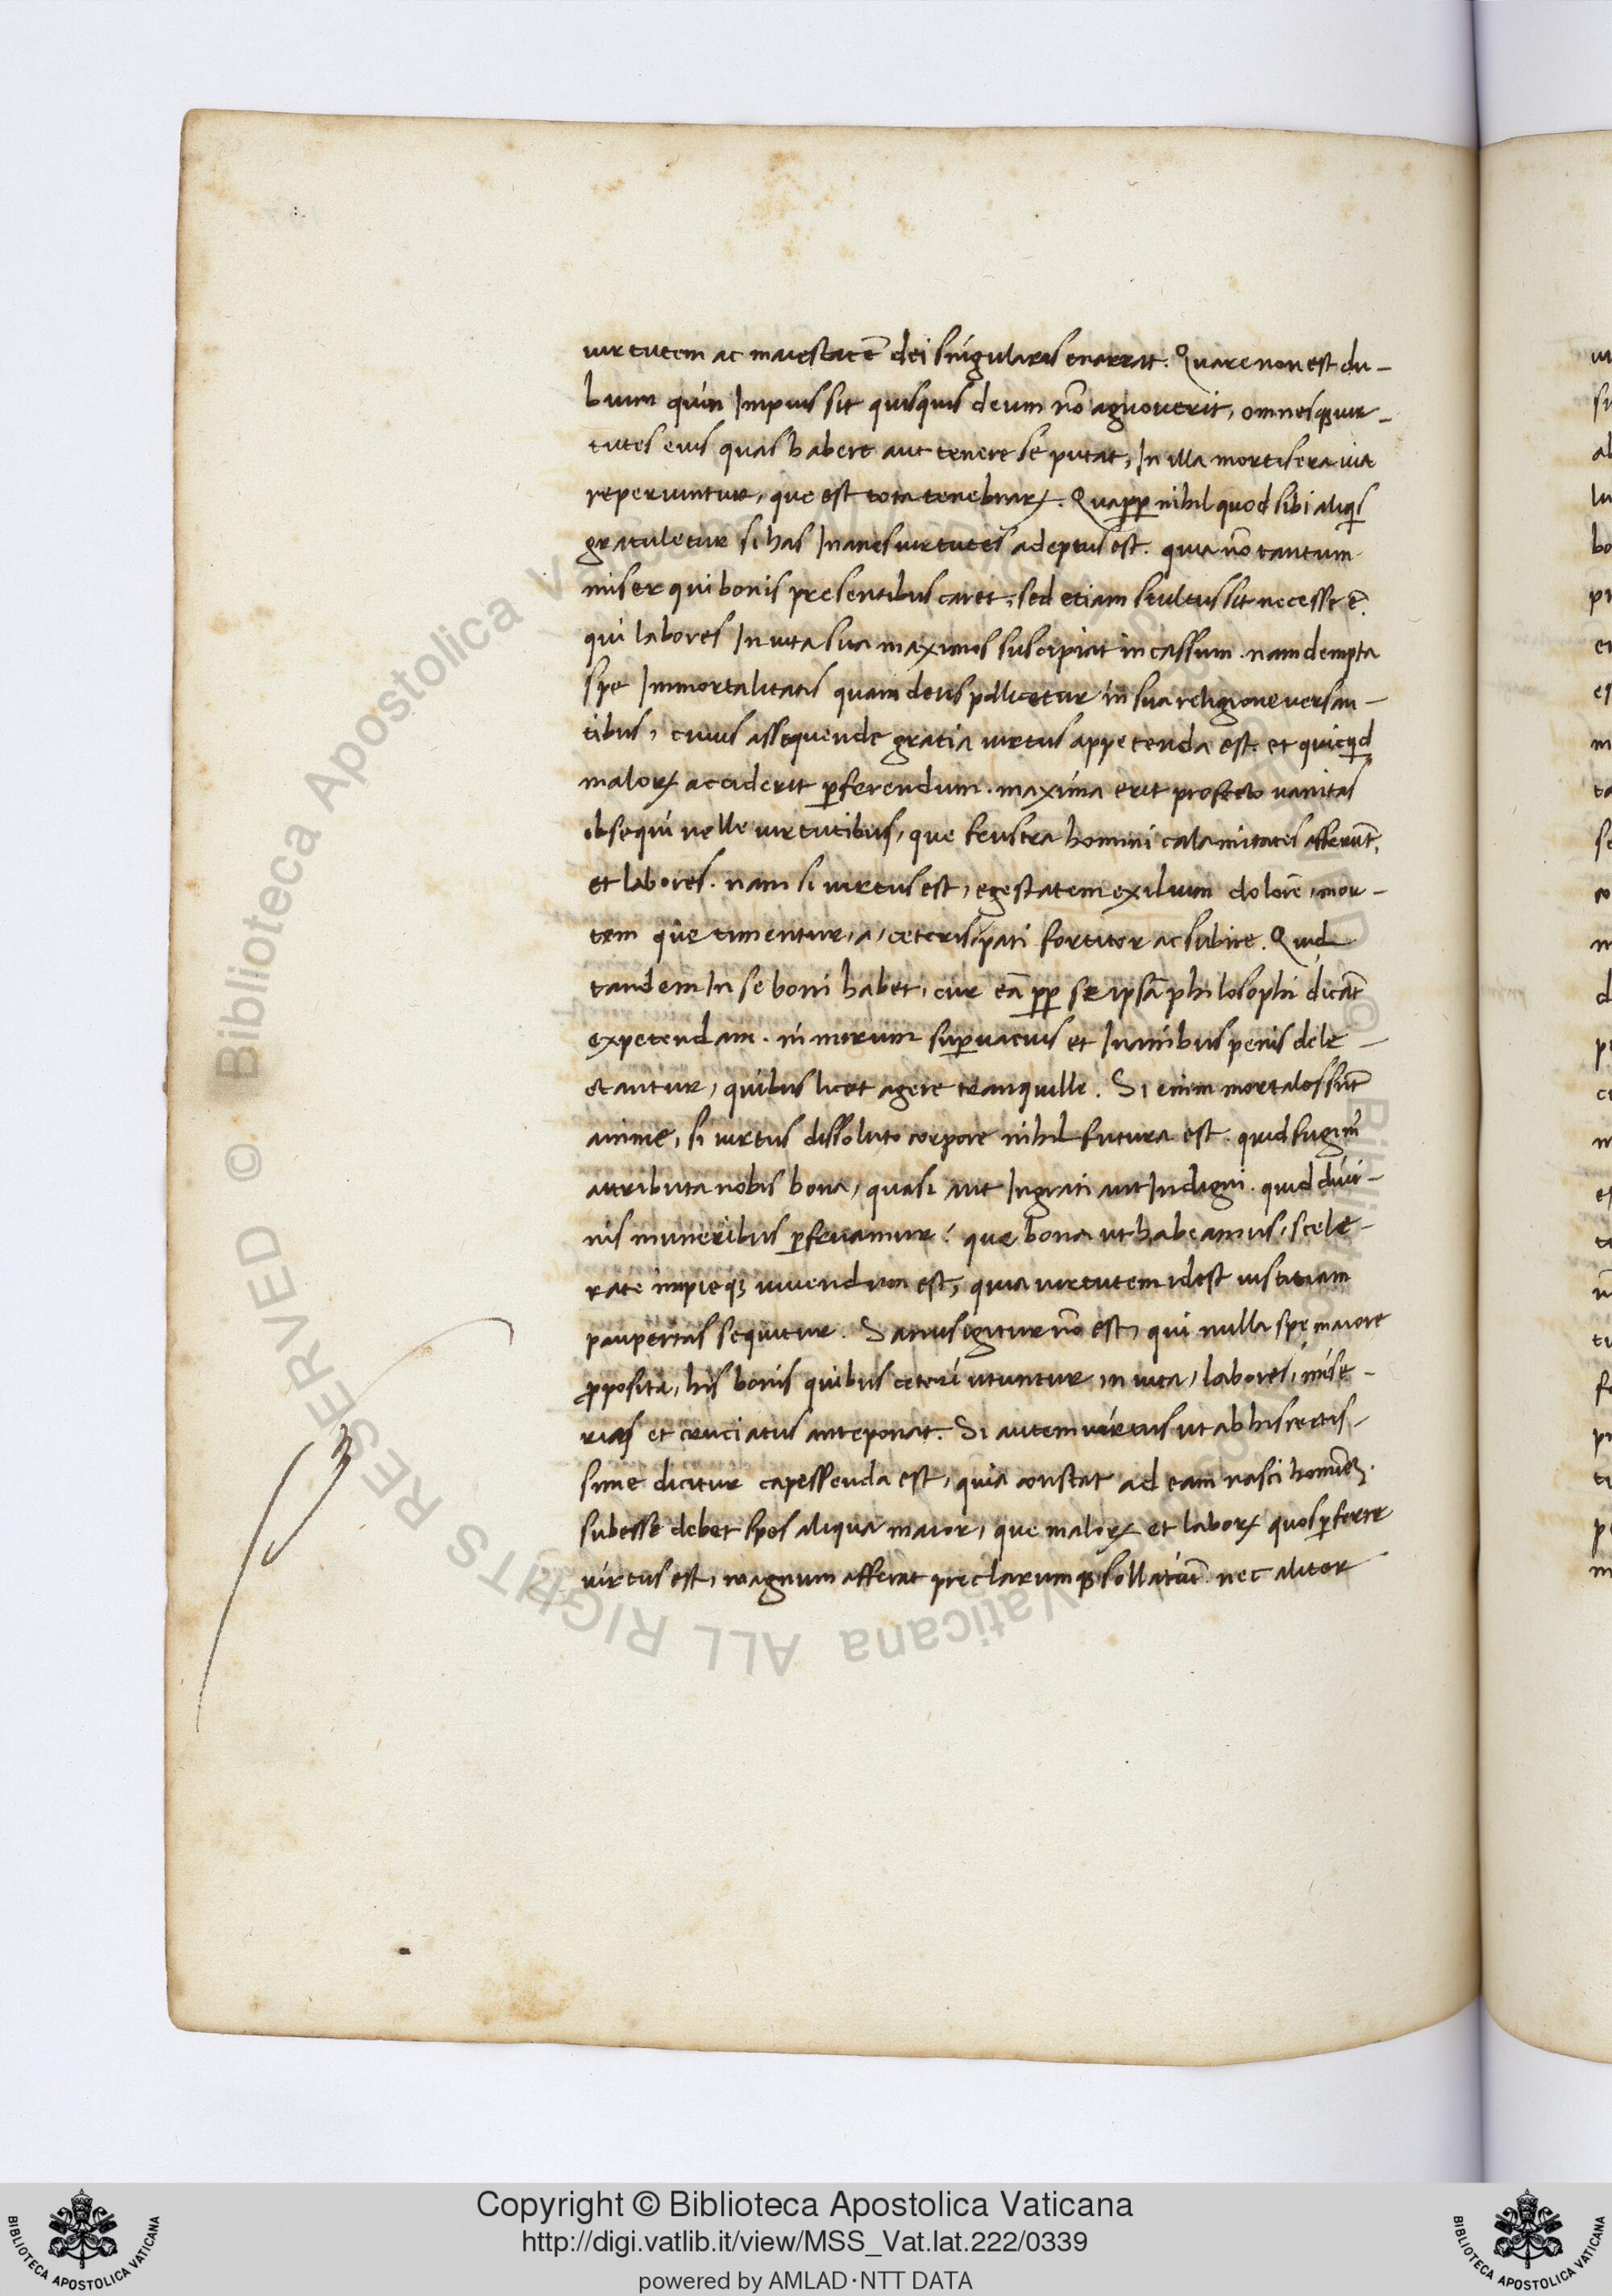 uirtutem ac maiestatē dei singularis enarrat. Quare non est du-
bium quin Impius sit quisquis deum nō agnouerit, omnesqꝫ uir-
tutes eius quas habere aut tenere se putat, In illa mortifera uia
reperiuntur, que est tota tenebrarꝝ. Quaꝓꝑ nihil quod sibi aliqͥs
gratuletur si has Inanes uirtutes adeptus est. quia nō tantum
miser qui bonis presentibus caret, sed etiam stultus sit necesse ē.
qui labores In uita sua maximos suscipiat in cassum. nam dempta
spe Immortalitatis quam deus pollicetur in sua religione uersan-
tibus, cuius assequende gratia uirtus appetenda est. et quicqͥd
malorꝝ acciderit ꝑferendum. maxima erit profecto uanitas
obsequi uelle uirtutibus, que frustra homini calamitates afferūt,
et labores. nam si uirtus est, egestatem exilium dolorē, mor-
tem que timentur, a, ceteris, pati fortiter ac subire. Quid
tandem In se boni habet, cur eā ꝓꝑ se ipsā philosophi dicāt
expetendam. nimirum suꝑuacuis et Inanibus penis dele-
ctantur, quibus licet agere tranquille. Si enim mortales sūt
anime, si uirtus dissoluto corpore nihil futura est. quid fugimꝰ
attributa nobis bona, quasi aut Ingrati aut Indigni. quid diui-
nis muneribus ꝑfruamur? que bona ut habeamus, scele-
rate impieqꝫ uiuendum est, quia uirtutem idest iustitiam
paupertas sequitur. Sanus igitur nō est, qui nulla spe maiore
ꝓposita, his bonis quibus ceteri utuntur in uita, labores, mise-
rias et cruciatus anteponat. Si autem uirtus ut ab his rectis-
sime dicitur capessenda est, quia constat ad eam nasci hominē.
subesse debet spes aliqua maior, que malorꝝ et laborꝝ quos ꝑferre
uirtus est, magnum afferat preclarumqꝫ sollatiū. nec aliter
Copyright © Biblioteca Apostolica Vaticana
http://digi.vatlib.it/view/MSS_Vat.lat.222/0339
powered by AMLAD·NTT DATA